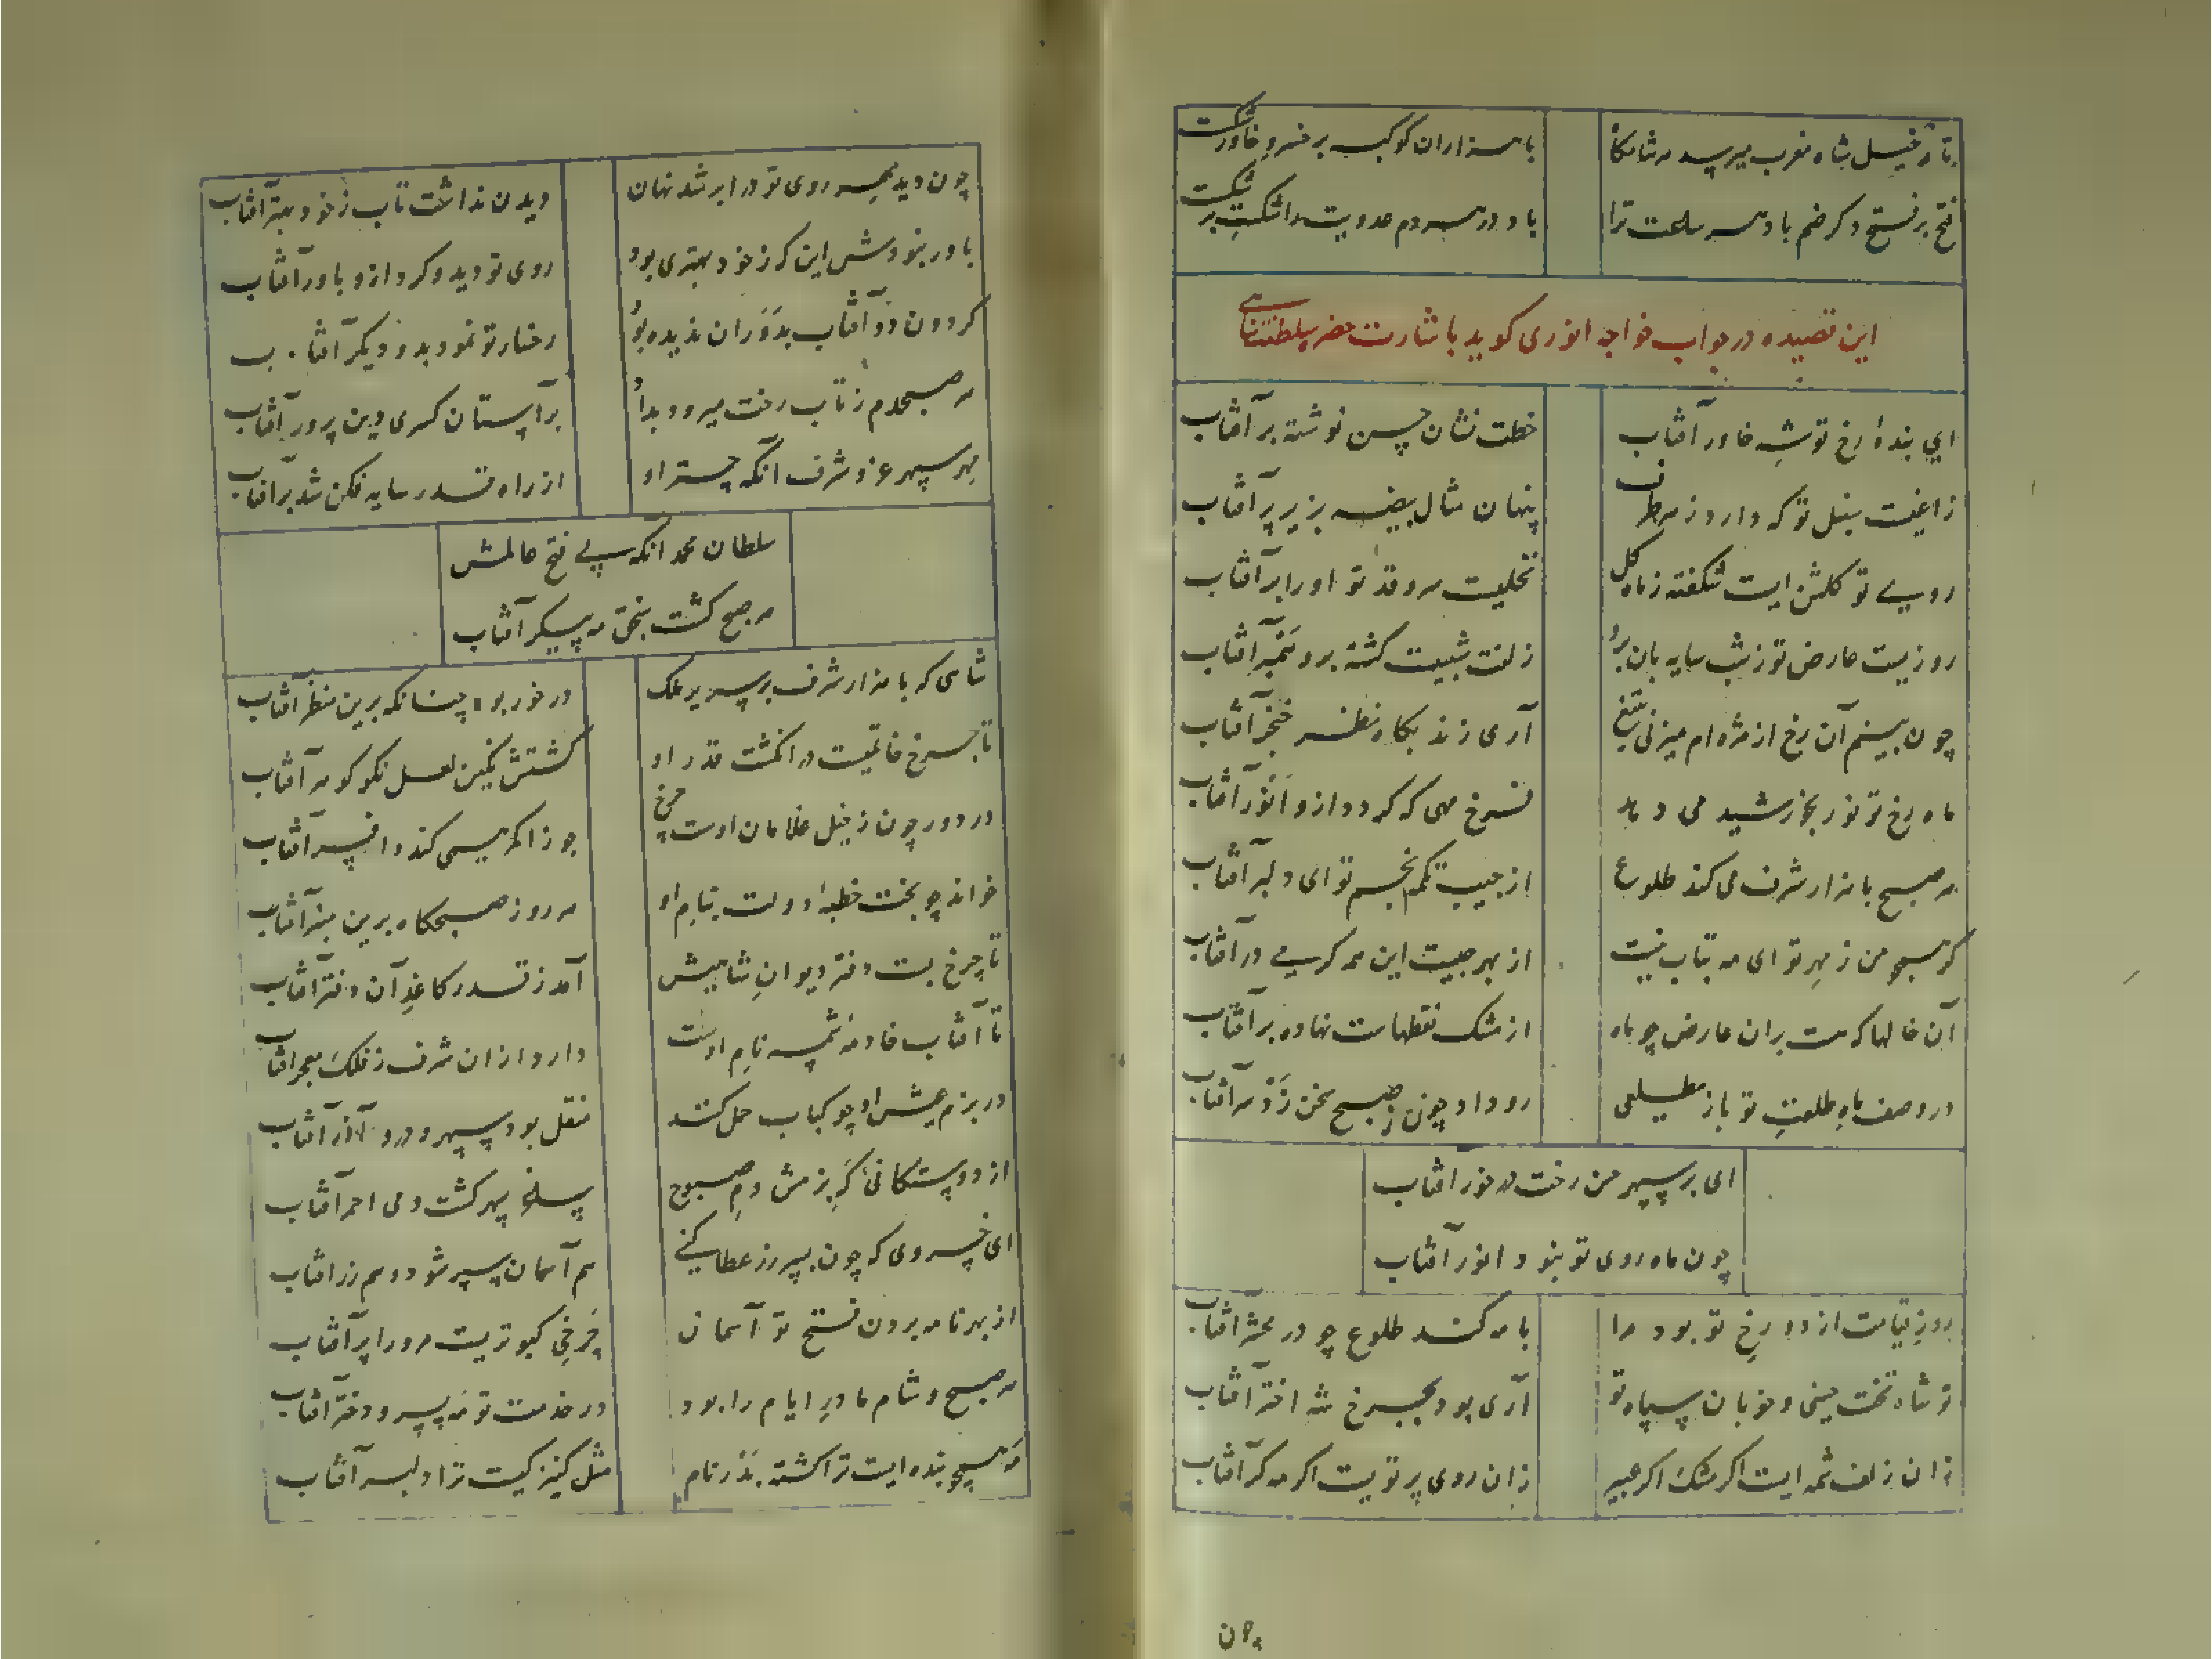 تا ز خیل شاه مغرب میرسد هر شامگاه با هزاران کوکبه بر خسرو خاور شکست
فتح بر فتح دگر ضم باد هر ساعت ترا باد در هر دم عدویت را شکست بر شکست
این قصیده در جواب خواجه انوری گوید باشارت حضرت سلطنت پناهی
ای بندهٔ رخ تو شه خاور آفتاب خطت نشان حسن نوشته بر آفتاب
زاغیست سنبل تو که دارد ز هر طرف پنهان مثال بیضه بزیر پر آفتاب
روی تو گلشن ایست شکفته ز ماه گل نخلیست سرو قد تو او را بر آفتاب
روزیست عارض تو ز شب سایه بان برو زلفت شبیست گشته برو آفتاب
چون بینم آن رخ از مژه ام میزنی تیغ آری زند بگاه نظر خنجر آفتاب
ماه رخ تو نور بخورشید می دهد فرخ مهی که گردد ازو انور آفتاب
هر صبح با هزار شرف می کند طلوع از جیب تکمه تو ای دلبر آفتاب
گر همچو من ز مهر تو ای مه بتاب نیست از بهر چیست این همه گرمی در آفتاب
آن خالها که هست بران عارض چو ماه از مشک نقطهاست نهاده بر آفتاب
در وصف ماه طلعت تو باز مطلعی رو داد چون ز صبح سخن زد سر آفتاب
ای بر سپهر حسن رخت در خور آفتاب
چون ماه روی تو نبود انور آفتاب
روز قیامت از دو رخ تو بود مرا با مه کند طلوع چو در محشر آفتاب
تو شاه تخت حسنی و خوبان سپاه تو آری بود بچرخ شه اختر آفتاب
زان زلف شمه ایست اگر مشک اگر عبیر زان روی پرتویست اگر مه گر آفتاب
چون
چون دید مهر روی تو در ابر شد نهان دیدن نداشت تاب ز خود بهتر آفتاب
باور نبودش این که ز خود بهتری بود روی تو دید و کرد ازو باور آفتاب
گردون دو آفتاب بدوران ندیده بود رخسار تو نمود بدو دیگر آفتاب
هر صبحدم ز تاب رخت میرود بدو بر آستان کسری دین پرور آفتاب
مهر سپهر عز و شرف آنکه چتر او از راه قدر سایه فکن شد بر آفتاب
سلطان محمد آنکه پی فتح عالمش
هر صبح گشت بختی مه پیکر آفتاب
شاهی که با هزار شرف بر سریر ملک در خور بود چنانکه برین منظر آفتاب
تا چرخ خاتمیست در انگشت قدر او گشتش نگین لعل نکو گوهر آفتاب
در دور چون ز خیل غلامان اوست چرخ جوزا کمر همی کند و افسر آفتاب
خواند چو بخت خطبهٔ دولت بنام او هر روز صبحگاه برین منبر آفتاب
تا چرخ بست دفتر دیوان شاهیش آمد ز قدر کاغذ آن دفتر آفتاب
تا آفتاب خادمه شمسه نام اوست دارد از آن شرف ز فلک معجر آفتاب
در بزم عیش او چو کباب حمل کشند منقل بود سپهر و درو آذر آفتاب
از دوستکانی که بزمش دم صبوح سپهر گشت و می احمر آفتاب
ای خسروی که چون بسپر زر عطا کنی هم آسمان سپر شود و هم زر آفتاب
از بهر نامه بردن فتح تو آسمان چرخی کبوتریست مر او را پر آفتاب
هر صبح و شام مادر ایام را بود در خدمت تو مه پسر و دختر آفتاب
مه همچو بنده ایست ترا گشته بدر نام مثل کنیزکیست ترا دلبر آفتاب